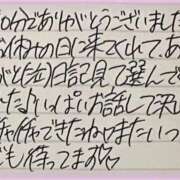 0分でありがとうございました
お休みの日に来てくれて、あ
がと(泣)日記見て選んで
た♪いっぱいお話して楽し
チャイチャできたねまたいつ
でも待ってます♡